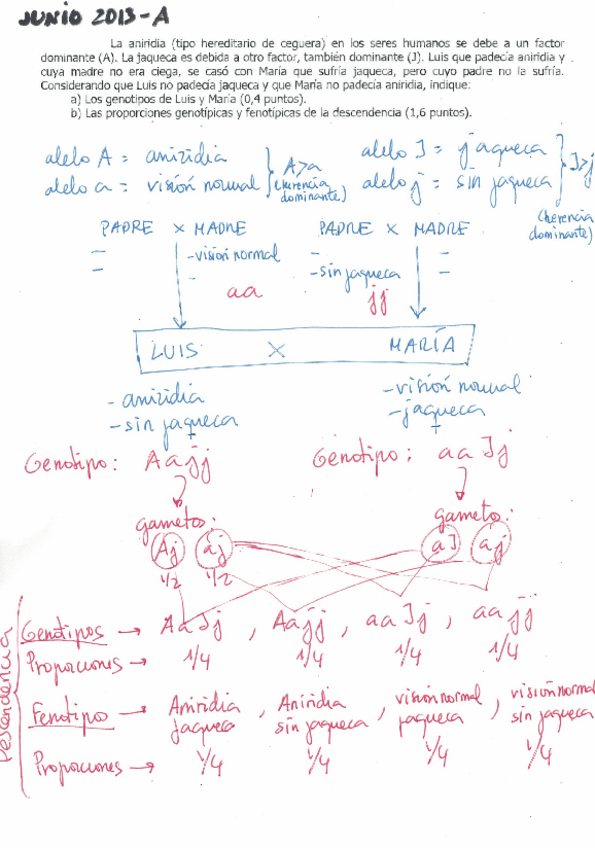 JUNIO 2013-A
La aniridia (tipo hereditario de ceguera) en los seres humanos se debe a un factor
dominante (A). La jaqueca es debida a otro factor, también dominante (J). Luis que padecía aniridia y
cuya madre no era ciega, se casó con María que sufría jaqueca, pero cuyo padre no la sufría.
Considerando que Luis no padecía jaqueca y que María no padecía aniridia, indique:
a) Los genotipos de Luis y María (0,4 puntos).
b) Las proporciones genotípicas y fenotípicas de la descendencia (1,6 puntos).
alelo A = aniridia
alelo a = visión normal
A>a
(herencia
dominante)
alelo J = jaqueca
alelo j = sin jaqueca
J>j
(herencia
dominante)
PADRE x MADRE
PADRE x MADRE
- -visión normal
- -
aa
- -
-sin jaqueca -
jj
LUIS X MARÍA
-aniridia
-sin jaqueca
-visión normal
-jaqueca
Genotipo: Aajj
Genotipo: aaJj
gametos:
gametos:
Aj aj
aJ aj
1/2 1/2
Descendencia
Genotipos → AaJj, Aajj, aaJj, aajj
Proporciones → 1/4 1/4 1/4 1/4
Fenotipos → Aniridia jaqueca, Aniridia sin jaqueca, visión normal jaqueca, visión normal sin jaqueca
Proporciones → 1/4 1/4 1/4 1/4